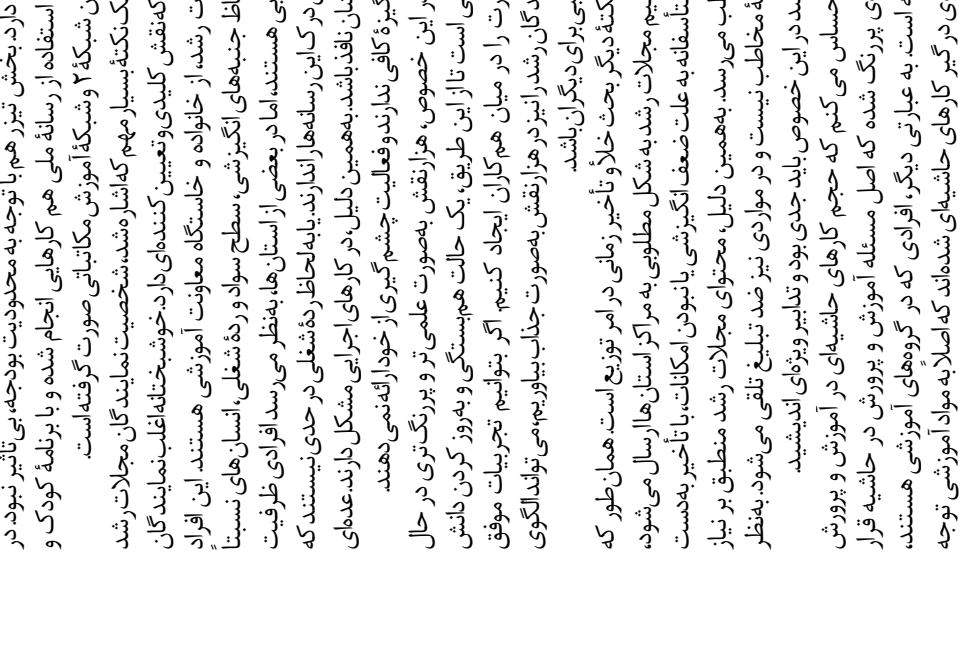 دارد. بخش تیزر هم با توجه به محدودیت بودجه، بی‌تأثیر نبود. در
استفاده از رسانهٔ ملی هم کارهایی انجام شده و با برنامهٔ کودک و
شبکهٔ ۲ و شبکهٔ آموزش مکاتباتی صورت گرفته است.
نکتهٔ بسیار مهم که اشاره شد، شخصیت نمایندگان مجلات رشد
که نقش کلیدی و تعیین کننده‌ای دارد. خوشبختانه اغلب نمایندگان
رشد، از خانواده و خاستگاه معاونت آموزشی هستند. این افراد
جنبه‌های انگیزشی، سطح سواد و ردهٔ شغلی، انسان‌های نسبتاً
هستند، اما در بعضی از استان‌ها، به‌نظر می‌رسد افرادی ظرفیت
درک این رسانه‌ها را ندارند یا به لحاظ ردهٔ شغلی در حدی نیستند که
نافذ باشد. به‌همین دلیل، در کارهای اجرایی مشکل دارند. عده‌ای
انگیزهٔ کافی ندارند و فعالیت چشم‌گیری از خود ارائه نمی‌دهند.
این خصوص، هزار نقش به‌صورت علمی‌تر و پررنگ‌تری در حال
است تا از این طریق، یک حالت هم‌بستگی و به‌روز کردن دانش
را در میان هم‌کاران ایجاد کنیم. اگر بتوانیم تجربیات موفق
رشد را نیز در هزار نقش به‌صورت جذاب بیاوریم، می‌تواند الگوی
برای دیگران باشد.
نکتهٔ دیگر بحث خلأ و تأخیر زمانی در امر توزیع است. همان‌طور که
مجلات رشد به شکل مطلوبی به مراکز استان‌ها ارسال می‌شود،
متأسفانه به علت ضعف انگیزشی یا نبودن امکانات، با تأخیر به‌دست
می‌رسد. به‌همین دلیل، محتوای مجلات رشد منطبق بر نیاز
مخاطب نیست و در مواردی نیز ضد تبلیغ تلقی می‌شود. به‌نظر
در این خصوص باید جدی بود و تدابیر ویژه‌ای اندیشید.
احساس می‌کنم که حجم کارهای حاشیه‌ای در آموزش و پرورش
پررنگ شده که اصل مسئله آموزش و پرورش در حاشیه قرار
است. به عبارتی دیگر، افرادی که در گروه‌های آموزشی هستند،
درگیر کارهای حاشیه‌ای شده‌اند که اصلاً به مواد آموزشی توجه